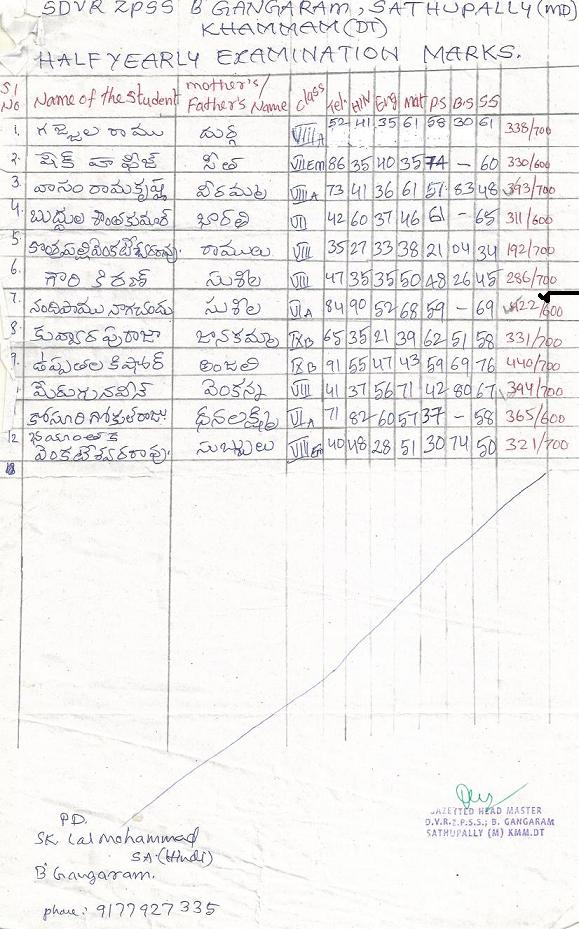 SDVR ZPSS B GANGARAM, SATHUPALLY (MD)
KHAMMAM (DT)
HALF YEARLY EXAMINATION MARKS.
Sl No Name of the Student mother's/ Father's Name Class Tel. HIN Eng Mat P.S B.S SS
1. గజ్జల రాము దుర్గ VIII A 52 41 35 61 58 30 61 338/700
2. షేక్ హాఫీజ్ సీత VII Em 86 35 40 35 74 - 60 330/600
3. వాసం రామకృష్ణ వీరమ్మ VIII A 73 41 36 61 51 83 48 393/700
4. బుద్దుల శాంతకుమార్ భారతి VII 42 60 37 46 61 - 65 311/600
5. కొత్తపల్లి వెంకటేశ్వరరావు రాములు VIII 35 27 33 38 21 04 34 192/700
6. గారి కిరణ్ సుశీల VIII 47 35 35 50 48 26 45 286/700
7. నందిపాము నాగచందు సుశీల VI A 84 90 52 68 59 - 69 422/600
8. పురాజా జానకమ్మ IX B 65 35 21 39 62 51 58 331/700
9. ఉప్పుతల కిషోర్ అంజలి IX B 91 55 47 43 59 69 76 440/700
మేరుగు నవీన్ వెంకన్న VIII 41 37 56 71 42 80 67 394/700
కోసూరి గోకుల్ రాజు. ధనలక్ష్మి VI A 71 82 60 57 37 - 58 365/600
12 వెంకటేశ్వరరావు సుబ్బులు VIII Em 40 48 28 51 30 74 50 321/700
GAZETTED HEAD MASTER
D.V.R.Z.P.S.S.; B. GANGARAM
SATHUPALLY (M) KMM.DT
P.D.
SK Lal Mohammad
SA (Hindi)
B' Gangaram.
phone: 9177927335